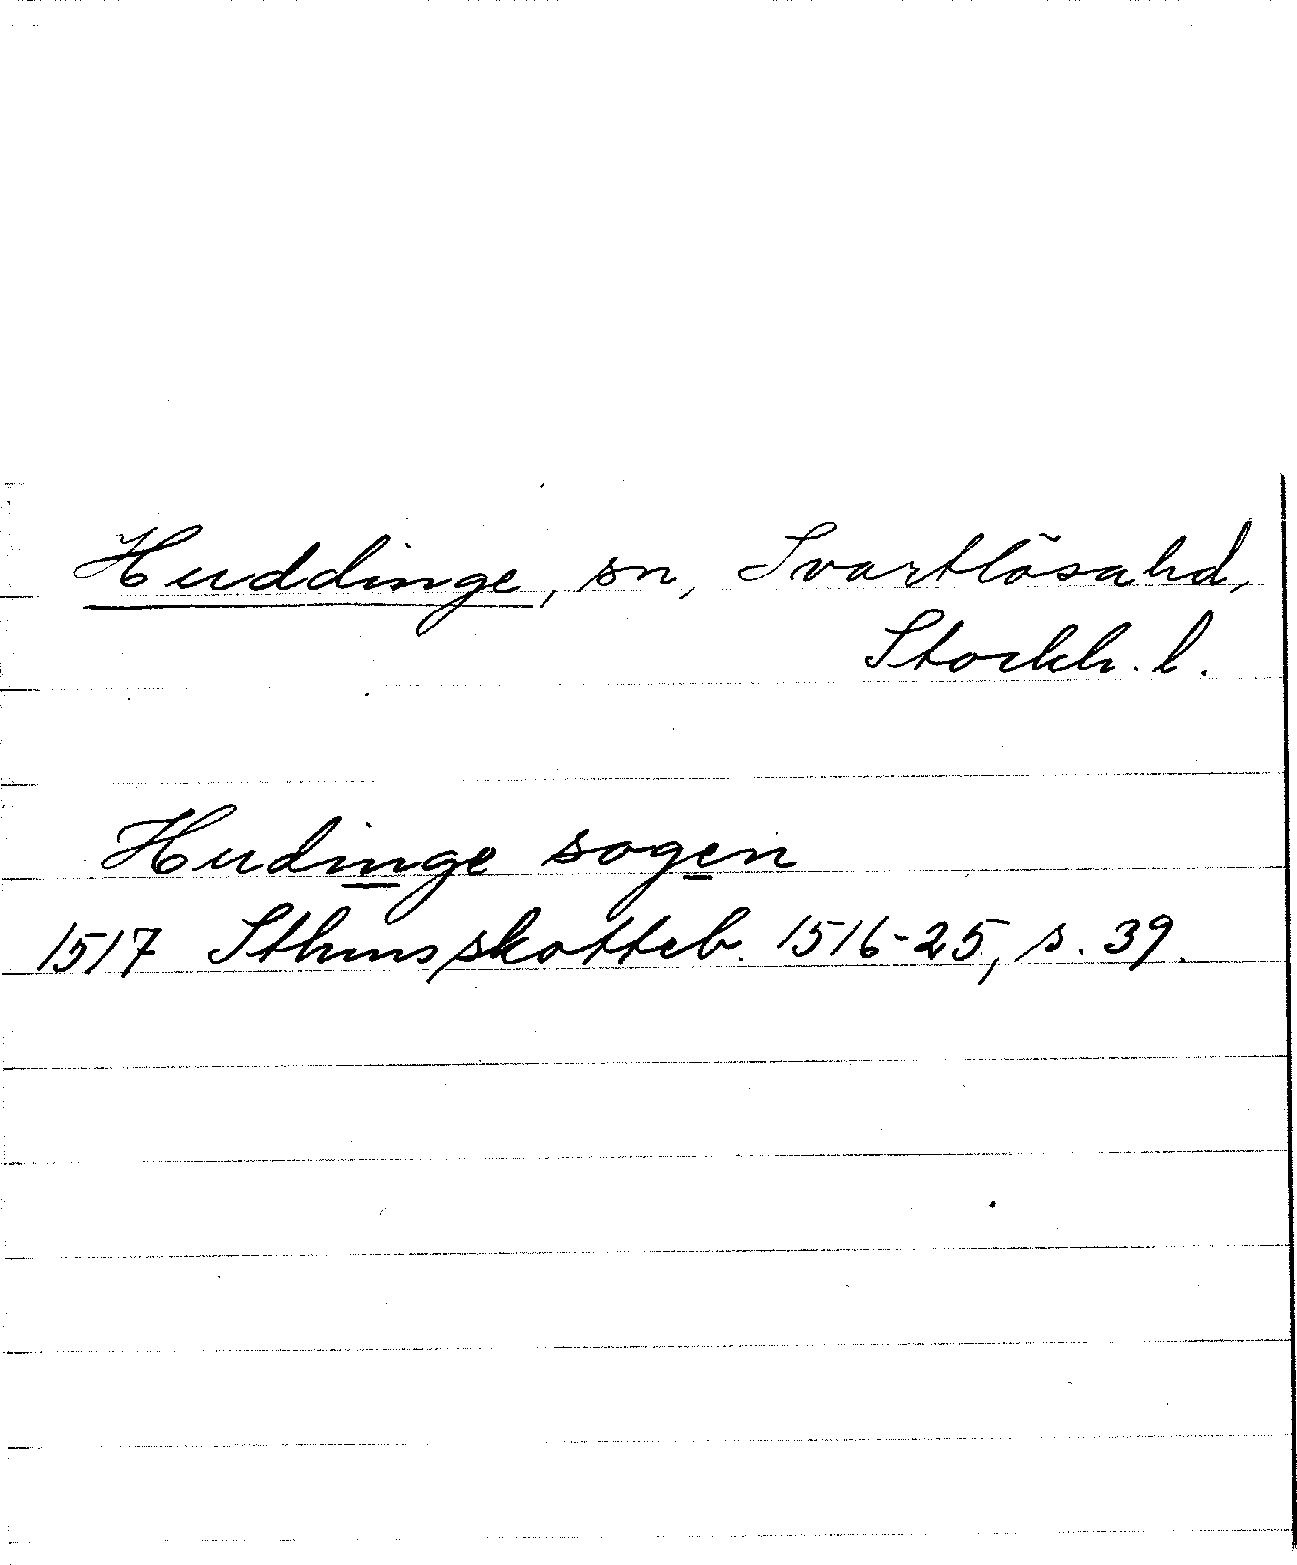 Huddinge, sn, Svartlösa hd,
Stockh. l.
Hudinge sogen
1517 Sthms skotteb. 1516-25, s. 39.